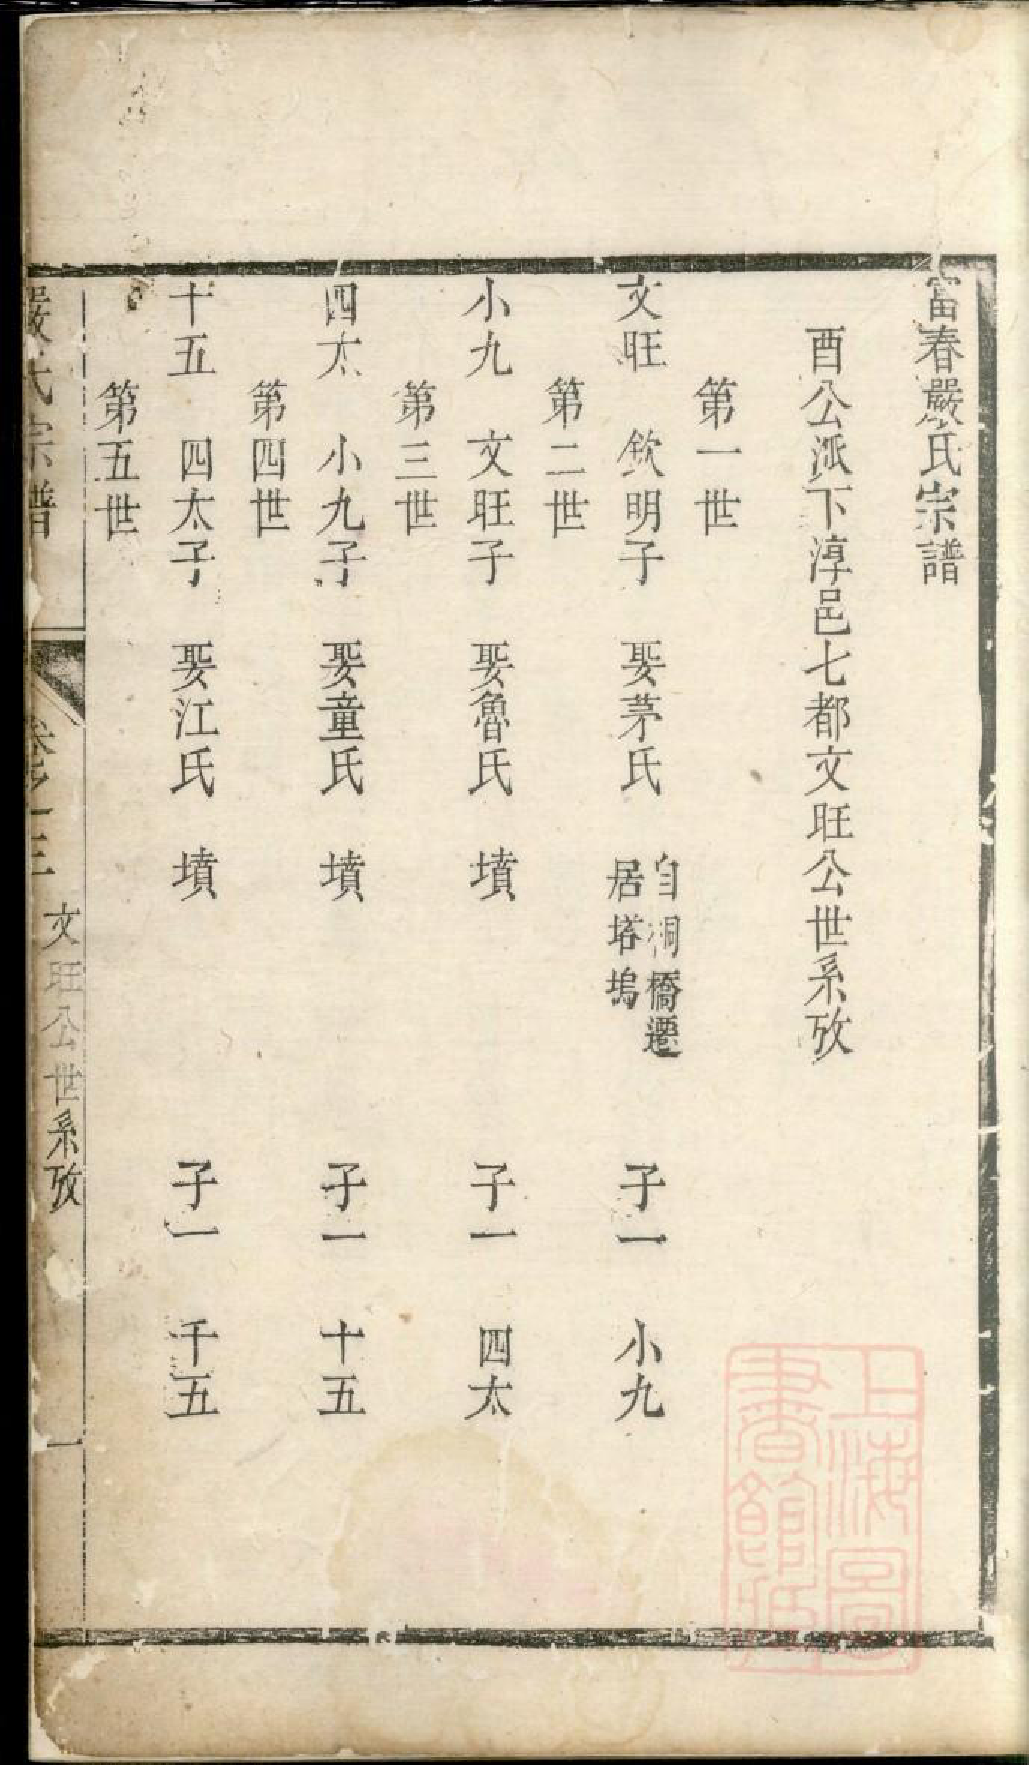 富春嚴氏宗譜
酉公派下淳邑七都文旺公世系攷
第一世
文旺 欽明子 娶茅氏 自桐橋遷居塔塢 子一 小九
第二世
小九 文旺子 娶魯氏 墳 子一 四太
第三世
四太 小九子 娶童氏 墳 子一 十五
第四世
十五 四太子 娶江氏 墳 子一 千五
第五世
嚴氏宗譜 卷之三 文旺公世系攷 一
上海圖書館藏